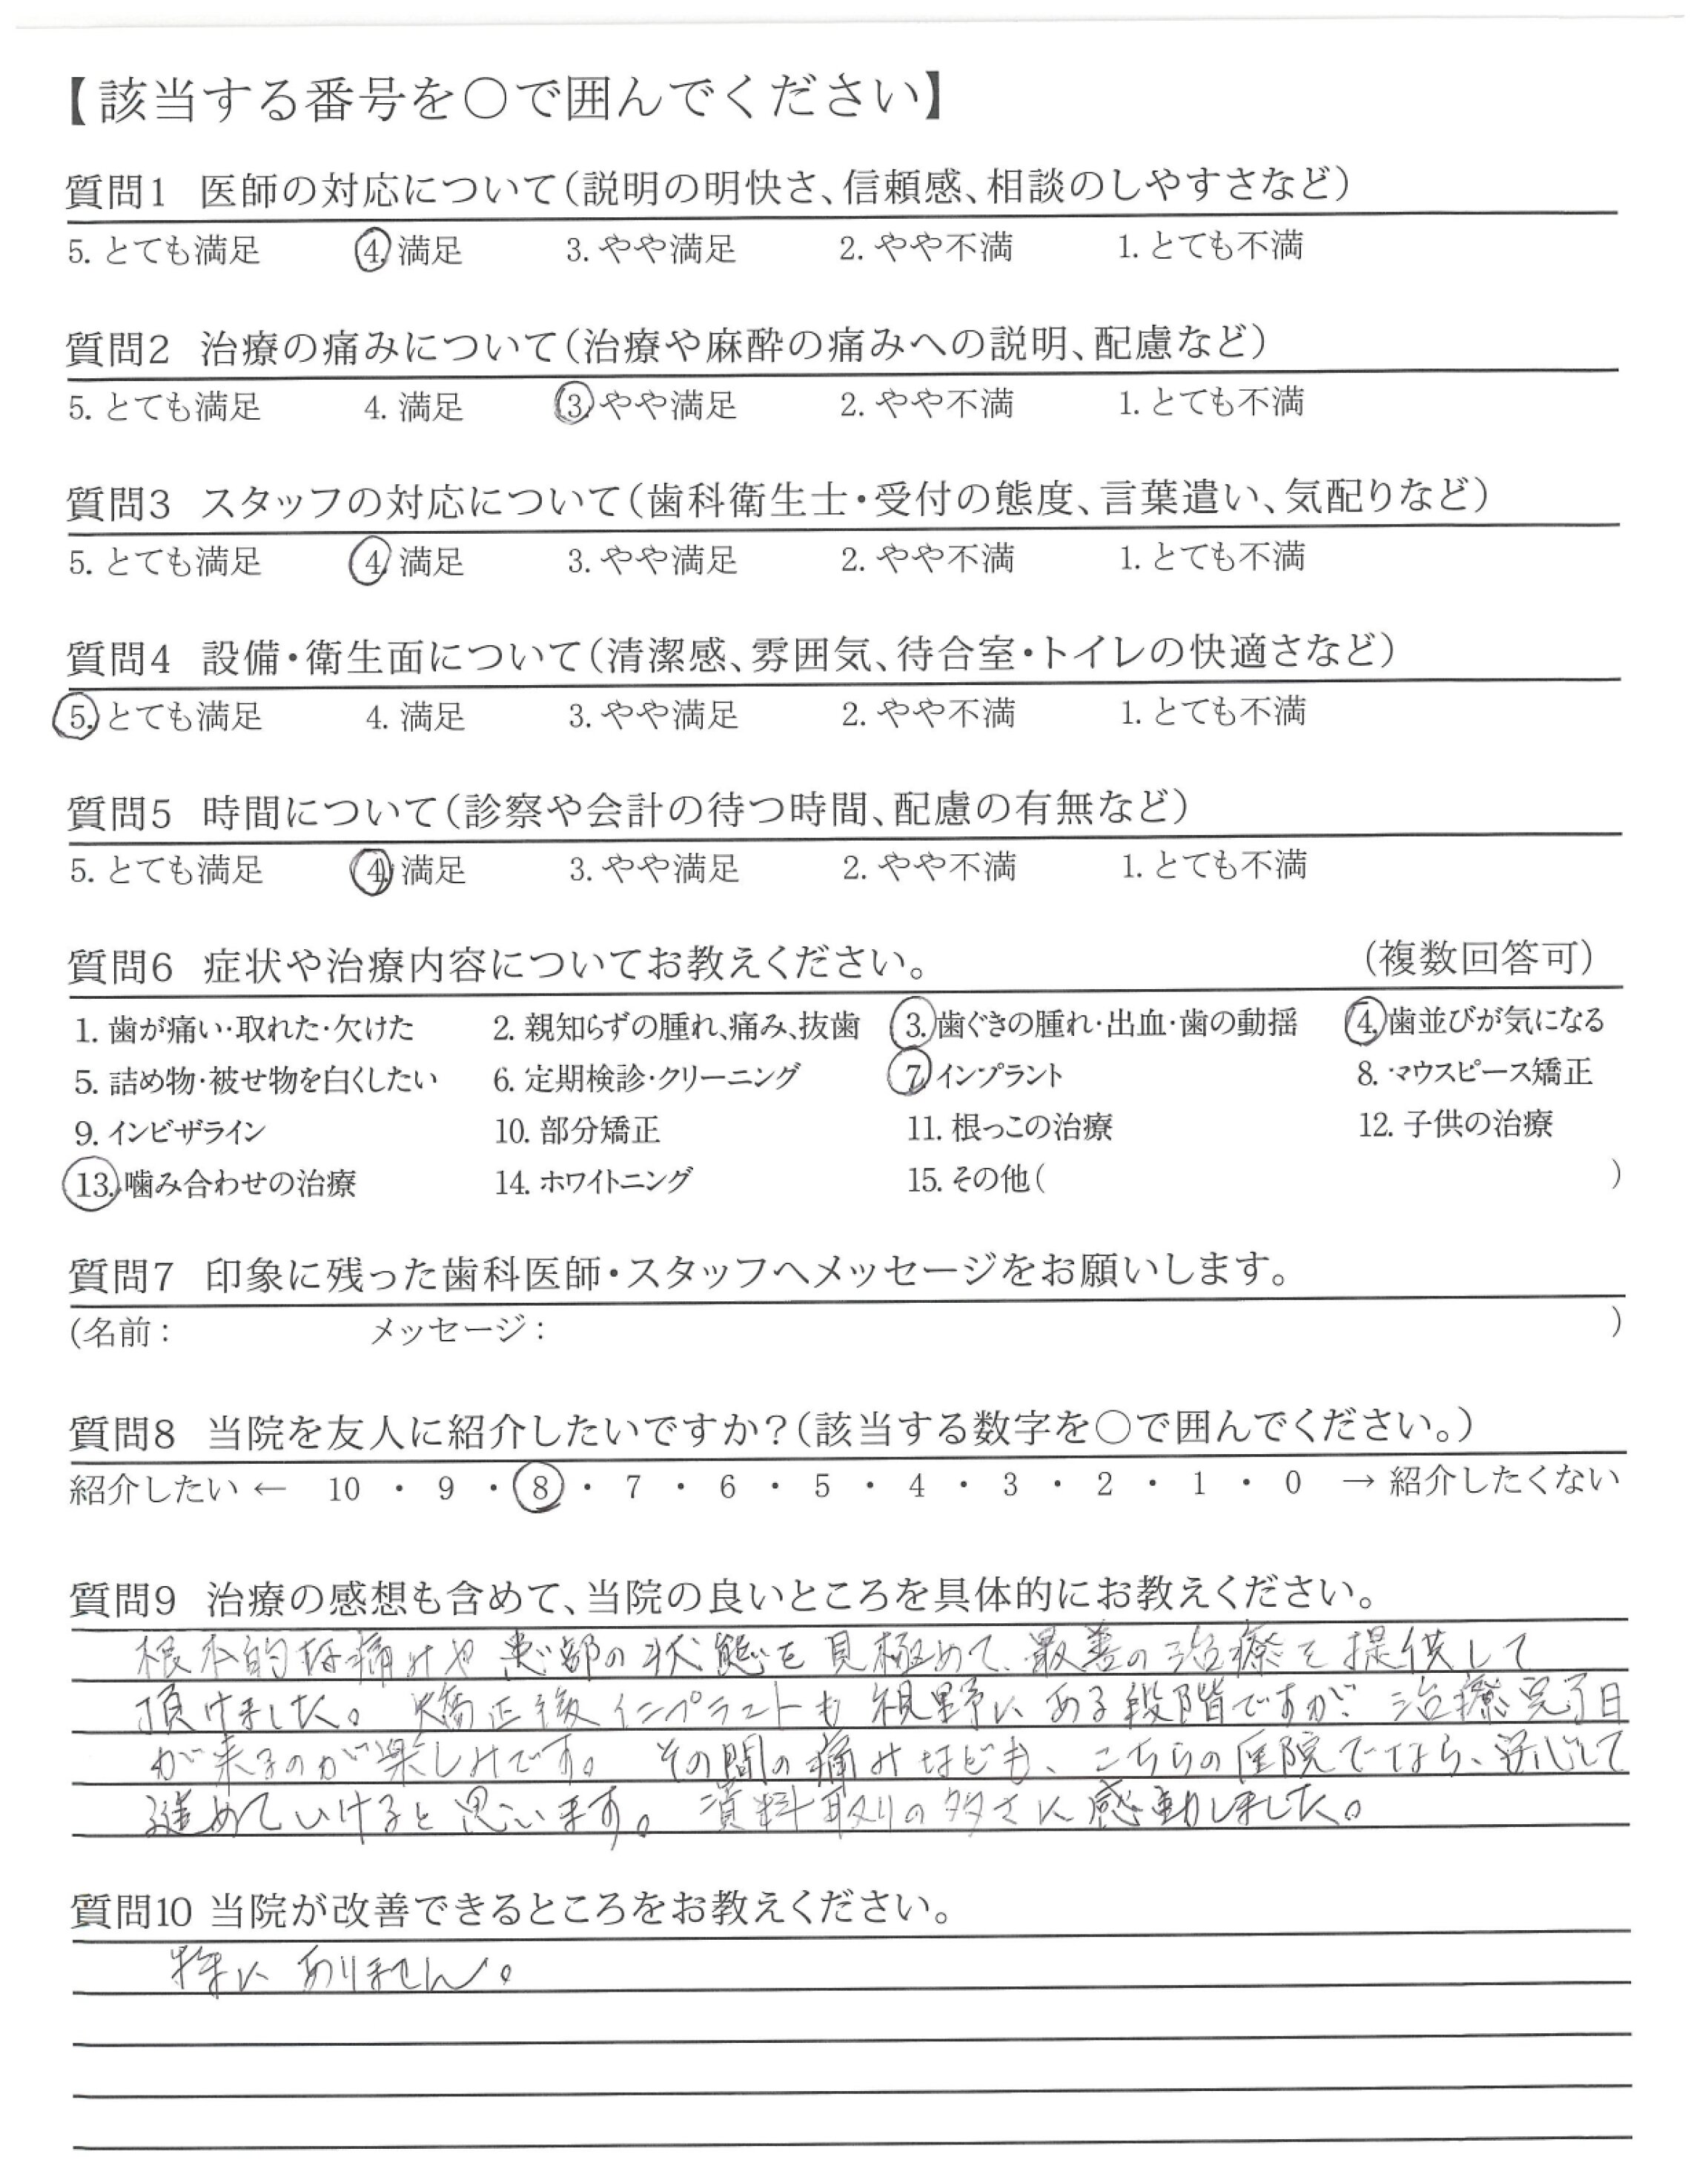 【該当する番号を○で囲んでください】
質問1 医師の対応について(説明の明快さ、信頼感、相談のしやすさなど)
5. とても満足 4. 満足 3. やや満足 2. やや不満 1. とても不満
質問2 治療の痛みについて(治療や麻酔の痛みへの説明、配慮など)
5. とても満足 4. 満足 3. やや満足 2. やや不満 1. とても不満
質問3 スタッフの対応について(歯科衛生士・受付の態度、言葉遣い、気配りなど)
5. とても満足 4. 満足 3. やや満足 2. やや不満 1. とても不満
質問4 設備・衛生面について(清潔感、雰囲気、待合室・トイレの快適さなど)
5. とても満足 4. 満足 3. やや満足 2. やや不満 1. とても不満
質問5 時間について(診察や会計の待つ時間、配慮の有無など)
5. とても満足 4. 満足 3. やや満足 2. やや不満 1. とても不満
質問6 症状や治療内容についてお教えください。 (複数回答可)
1. 歯が痛い・取れた・欠けた 2. 親知らずの腫れ、痛み、抜歯 3. 歯ぐきの腫れ・出血・歯の動揺 4. 歯並びが気になる
5. 詰め物・被せ物を白くしたい 6. 定期検診・クリーニング 7. インプラント 8. マウスピース矯正
9. インビザライン 10. 部分矯正 11. 根っこの治療 12. 子供の治療
13. 噛み合わせの治療 14. ホワイトニング 15. その他( )
質問7 印象に残った歯科医師・スタッフへメッセージをお願いします。
(名前: メッセージ: )
質問8 当院を友人に紹介したいですか?(該当する数字を○で囲んでください。)
紹介したい ← 10 ・ 9 ・ 8 ・ 7 ・ 6 ・ 5 ・ 4 ・ 3 ・ 2 ・ 1 ・ 0 → 紹介したくない
質問9 治療の感想も含めて、当院の良いところを具体的にお教えください。
根本的な痛みや患部の状態を見極めて、最善の治療を提供して
頂けました。矯正後インプラントも視野にある段階ですが、治療完了日
が来るのが楽しみです。その間の痛みなども、こちらの医院でなら、安心して
進めていけると思います。資料取りの多さに感動しました。
質問10 当院が改善できるところをお教えください。
特にありません。